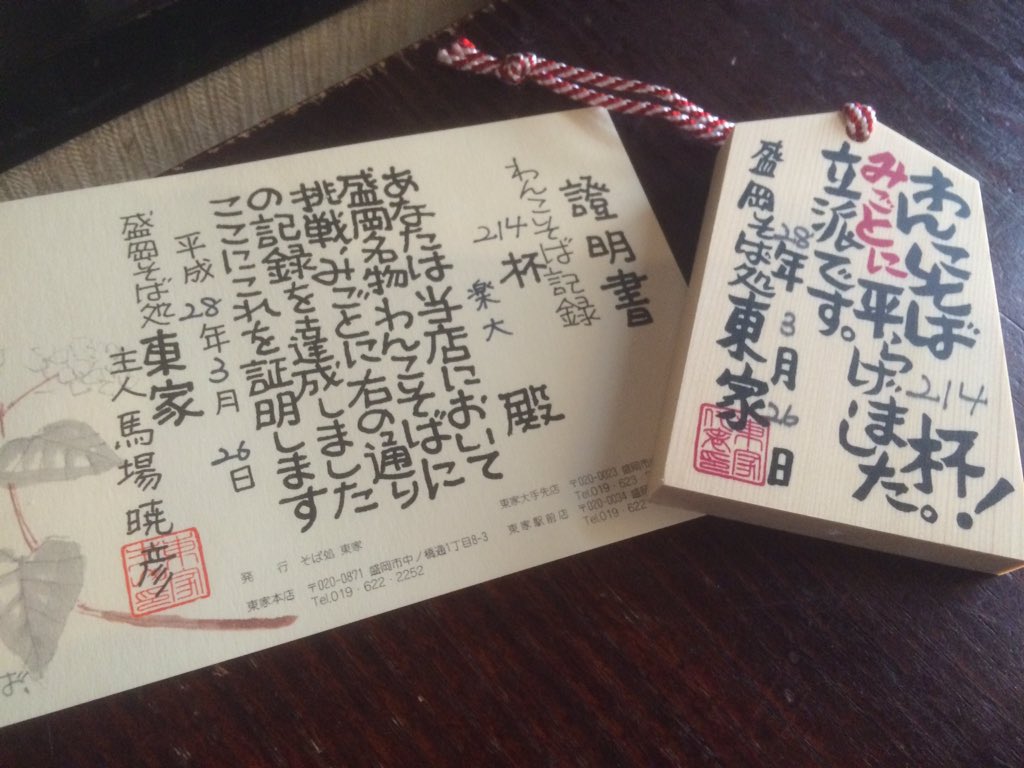 證明書
わんこそば記録
214杯
楽大 殿
あなたは当店において
盛岡名物わんこそばに
挑戦みごとに右の通り
の記録を達成しました
ここにこれを証明します
平成28年3月26日
盛岡そば処 東家
主人 馬場暁彦
東家
発行 そば処 東家
東家本店 〒020-0871 盛岡市中ノ橋通1丁目8-3
Tel.019・622・2252
東家大手先店 〒020-0023 盛岡市
Tel.019・623
東家駅前店 〒020-0034 盛岡
Tel.019・622
ば、
わんこそば214杯!
みごとに平らげました。
立派です。
28年3月26日
盛岡そば処東家
東家